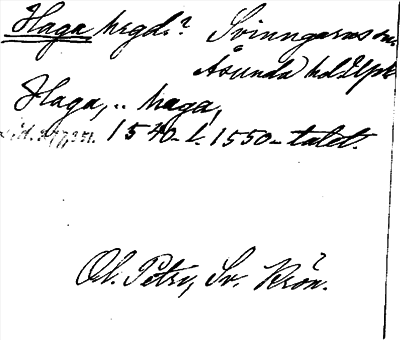 Haga hrgd.? Svinngarns sn.
Åsunda hd Upl.
Haga, .. haga,
sid. 217, 251. 1540-t. 1550-talet.
Ol. Petri, Sv. Krön.